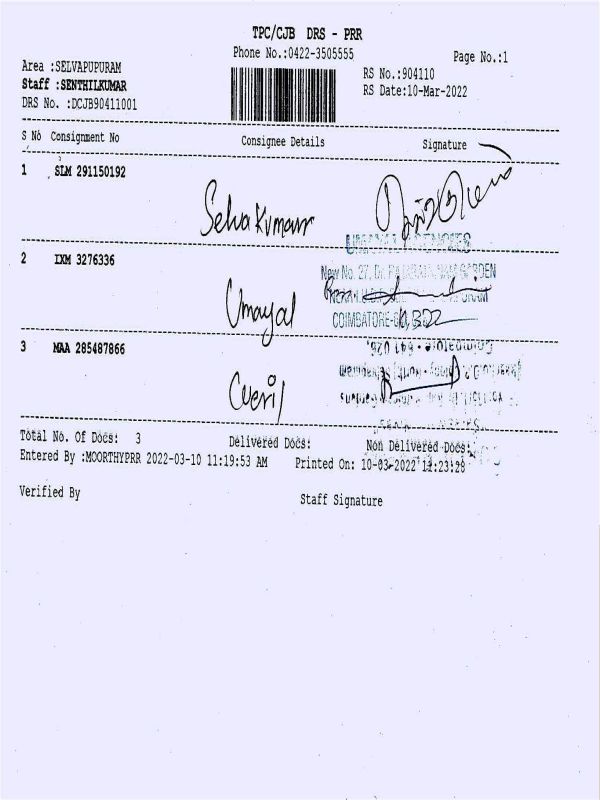 TPC/CJB DRS - PRR
Phone No.:0422-3505555
Page No.:1
Area :SELVAPUPURAM
RS No.:904110
Staff :SENTHILKUMAR
RS Date:10-Mar-2022
DRS No. :DCJB90411001
S No Consignment No Consignee Details Signature
1 SLM 291150192
Selvakumar
2 IXM 3276336
New No. 27, Dr. GARDEN
Umayal
COIMBATORE-
3 MAA 285487866
Coimbatore - 641 026.
Total No. Of Docs: 3 Delivered Docs: Non Delivered Docs:
Entered By :MOORTHYPRR 2022-03-10 11:19:53 AM Printed On: 10-03-2022 11:23:28
Verified By Staff Signature